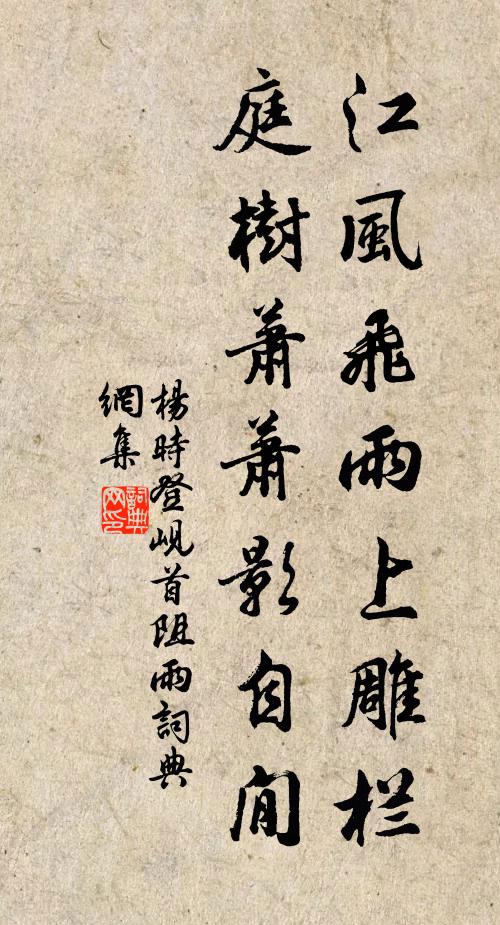 江風飛雨上雕栏
庭樹蕭蕭影自閒
楊時登峴首阻雨詞典
網集
詞典
网印